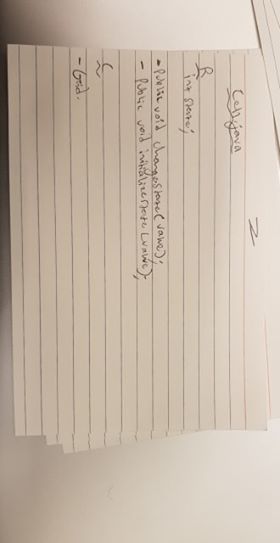 Cell.java
R
int state;
- Public void changestate(value);
- Public void initializestate(value);
C
- Grid.